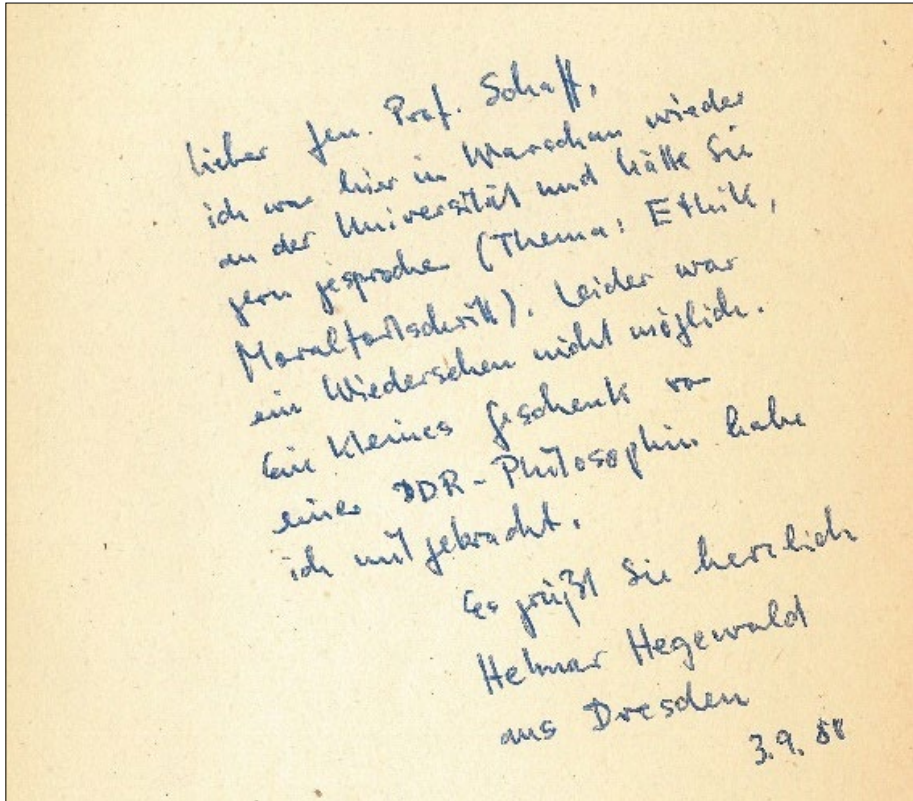 Lieber Gen. Prof. Schaff,
ich war hier in Warschau wieder
an der Universität und hätte Sie
gern gesprochen (Thema: Ethik,
Moralfortschritt). Leider war
ein Wiedersehen nicht möglich.
Ein kleines Geschenk von
einer DDR-Philosophin habe
ich mitgebracht.
Es grüßt Sie herzlich
Helmar Hegewald
aus Dresden
3.9.88